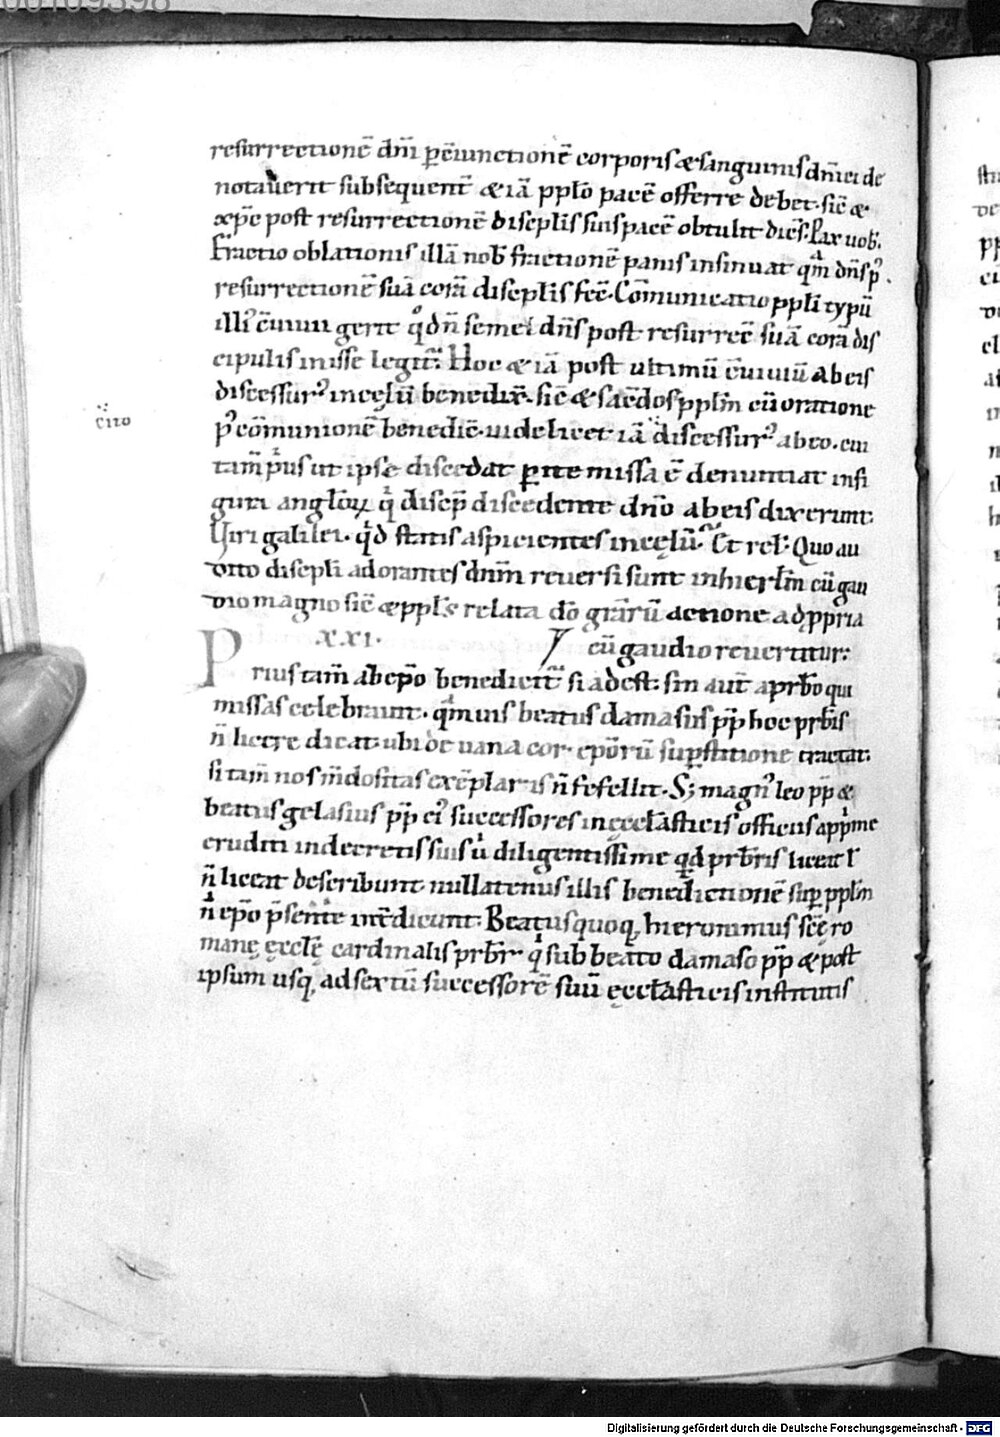 00109398
resurrectionē dn̄i ꝑ c̄iunctionē corporis & sanguinis dn̄iei de
notauerit subsequent̄ & iā pplo̅ pacē offerre debet. sic̄ &
xp̄c post resurrectionē discipl̄is suis pacē obtulit dic̄s. Pax uob̄.
Fractio oblationis illā nob̄ fractionē panis insinuat qm̄ dn̄s p᾽
resurrectionē suā corā discipl̄is fec̄. Cōmunicatio ppl̄i typū
illi᾽ c̄uiuii gerit qͦdn̄ semei dn̄s post resurrec̄ suā corā dis
cipulis inisse legit̄. Hoc & iā post ultimū c̄uiuiū ab eis
discessur᾽ in cęlū benedix̄. sic̄ & sac̄dos ppl̄m cū oratione
p᾽ cōmunionē benedic̄. uidelicet iā discessur᾽ ab eo. cui
cito
tam̄ pͥus ut ipse discedat ꝑ ite missa ē denuntiat in fi
guri angl̄oꝝ qͥ discip̄ discedente dn̄o ab eis dixerunt.
Uiri galilei. qͥd statis aspicientes in cęlū. Et rel̄. Quo au
dito discipl̄i adorantes dn̄m reuersi sunt in hierl̄m cū gau
dio magno sic̄ & ppl̄s relata dō gr̄arū actione ad ꝓpria
XXI. cū gaudio reuertitur:
Prius tam̄ ab ep̄o benedicit̄ si adest. sin aut̄ a prb̄o qui
missas celebraunt. qm̄uis beatus damasus pp̄ hoc prb̄is
n̄ licere dicat. ubi de uana cor ep̄orū suꝑstitione tractat.
si tam̄ nos m̄dositas exēplaris n̄ fefellit. S; magn᾽ leo pp̄ &
beatus gelasius pp̄ ei᾽ successores in ęccl̄asticis officiis appͥme
eruditi in decretis suis uͥ diligentissime qͥd prb̄ris liceat ł
n̄ liceat describunt nullatenus illis benedictionē suꝑ ppl̄m
nͥ ep̄o p̄sente int̄dicunt. Beatus quoq, hieronimus sc̄ę ro
manę ęccl̄ę cardinalis prb̄r qͥ sub beato damaso pp̄ & post
ipsum usq, ad sextū successorē suū ęccl̄asticis institutis
Digitalisierung gefördert durch die Deutsche Forschungsgemeinschaft - DFG